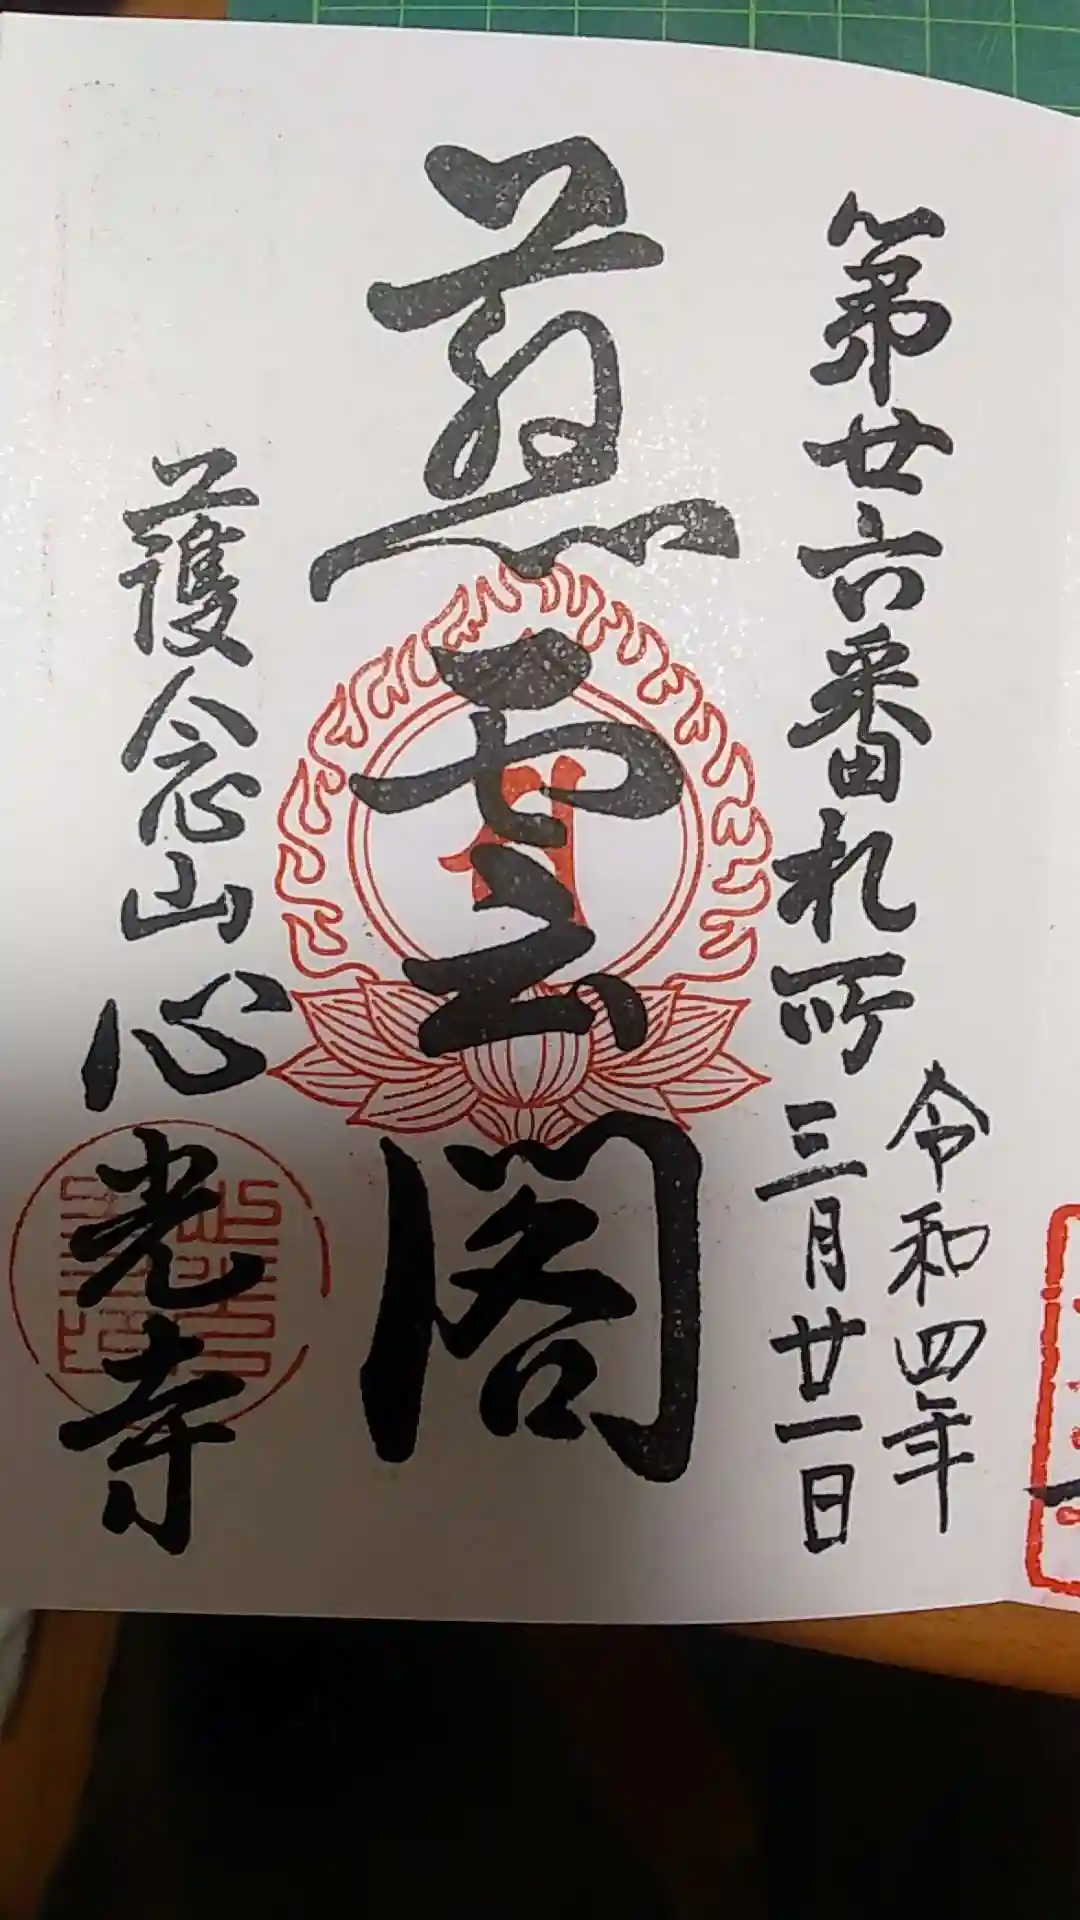 第廿六番札所
令和四年
三月廿一日
慈雲閣
護念山
心光寺